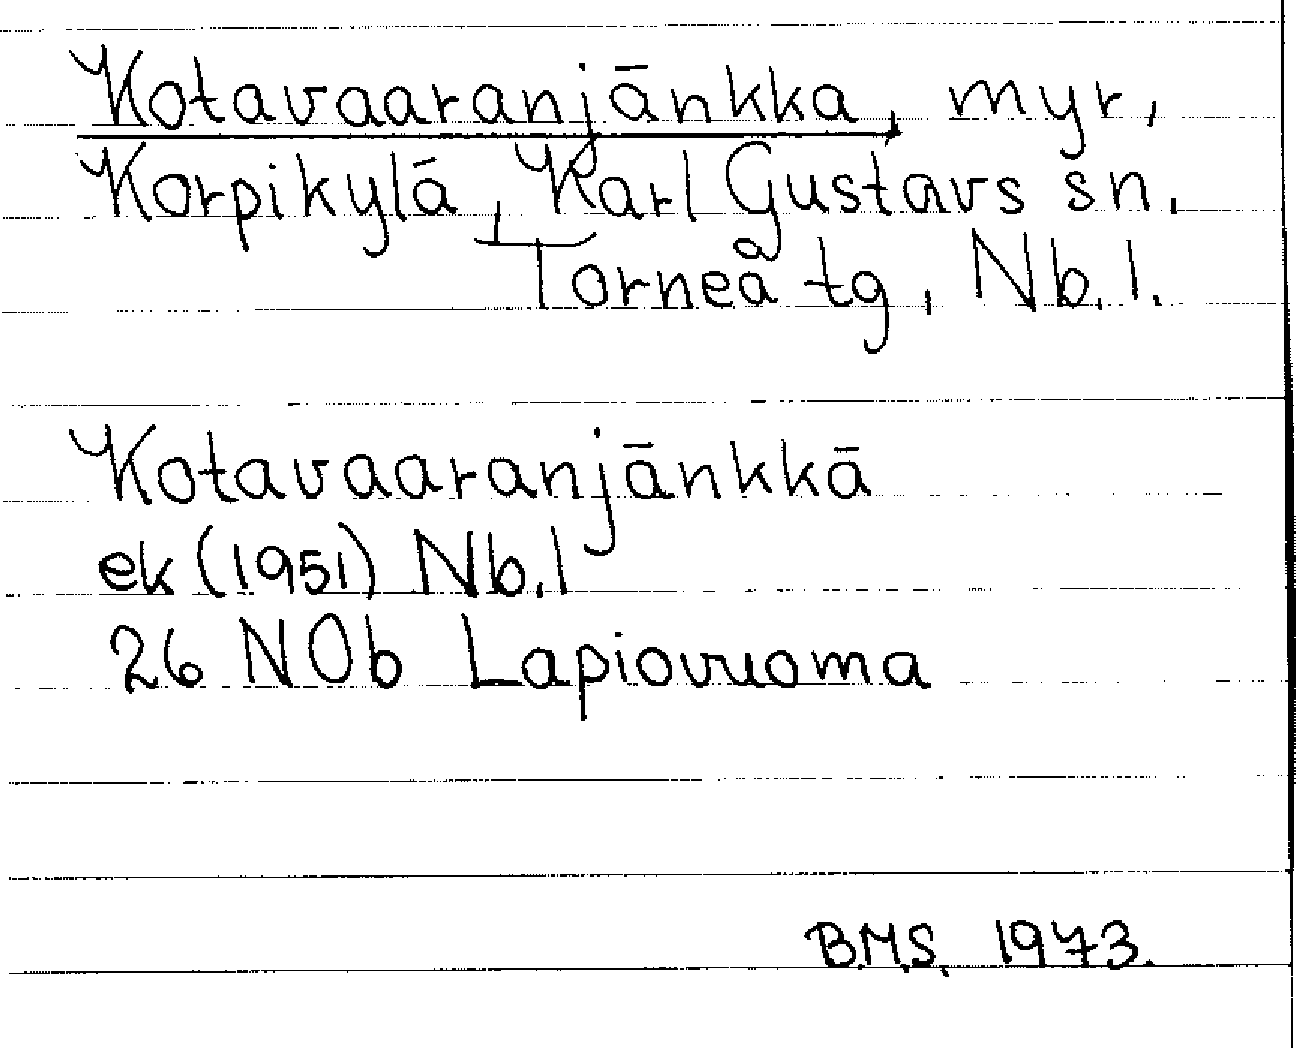 Kotavaaranjänkka, myr,
Korpikylä, Karl Gustavs sn.
Torneå tg, Nb. l.
Kotavaaranjänkkä
ek (1951) Nb. l
26 NOb Lapiovuoma
B.M.S. 1973.